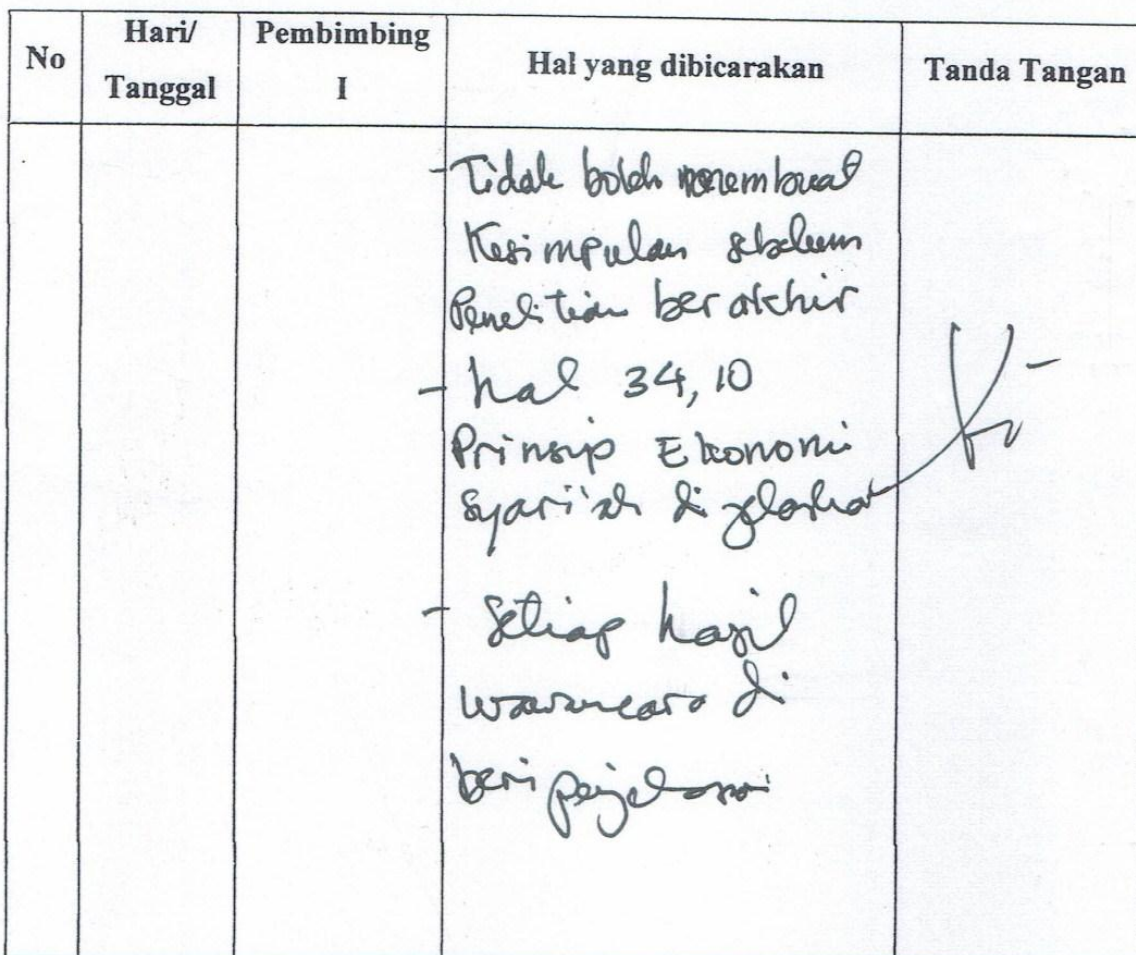 No
Hari/
Tanggal
Pembimbing
I
Hal yang dibicarakan
Tanda Tangan
- Tidak boleh menembuat
Kesimpulan sebelum
Penelitian berakhir
- hal 34, 10
Prinsip Ekonomi
Syari'ah dijelaskan
- Setiap hasil
wawancara di
beri penjelasan